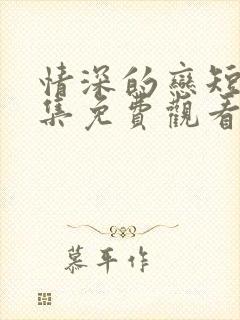 情深的戀短
集免費觀看
慕平作